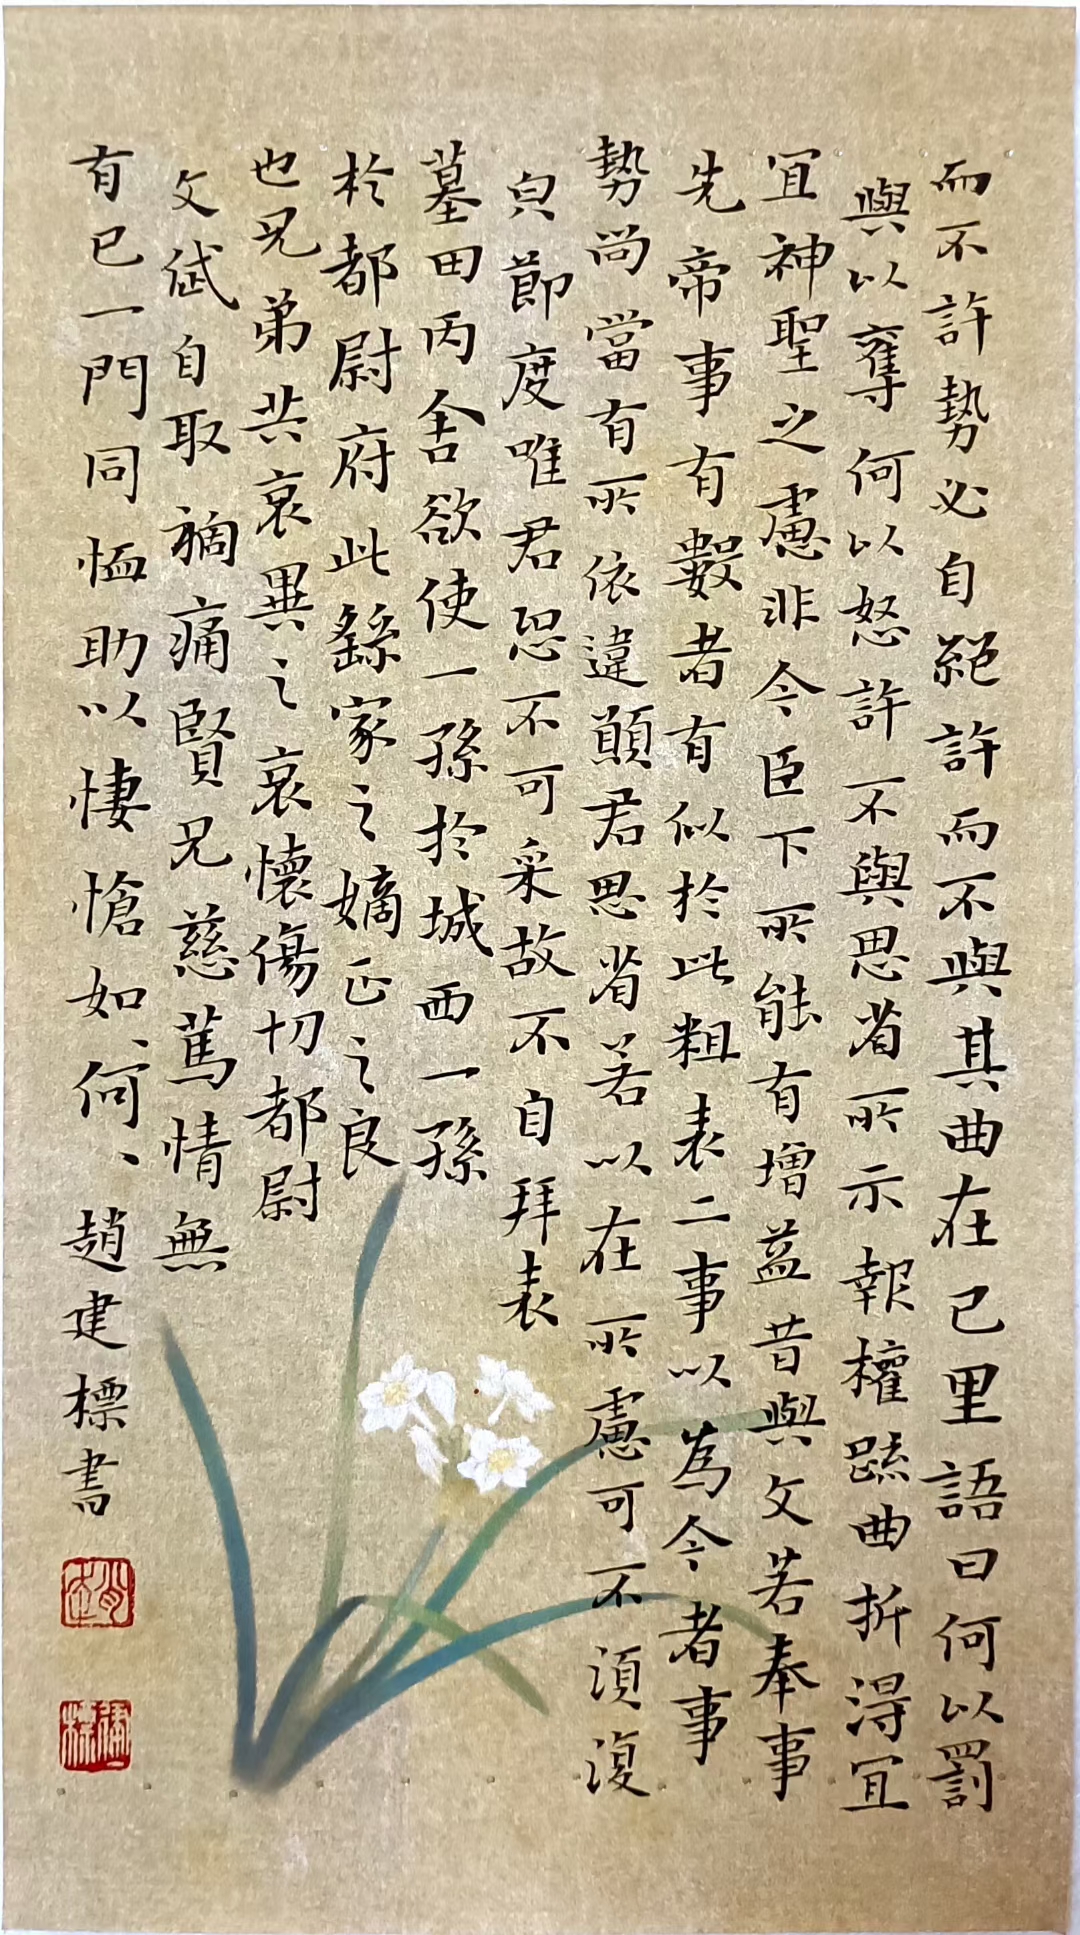 而不許勢必自絕許而不與其曲在己里語曰何以罰
與以奪何以怒許不與思省所示報權疏曲折得宜
宜神聖之慮非今臣下所能有增益昔與文若奉事
先帝事有數者有似於此粗表二事以為今者事
勢尚當有所依違願君思省若以在所慮可不須復
皃節度唯君恐不可采故不自拜表
墓田丙舍欲使一孫於城西一孫
於都尉府此繇家之嫡正之良
也兄弟共哀異之哀懷傷切都尉
文岱自取禍痛賢兄慈篤情無
有已一門同恤助以悽愴如何、趙建標書
趙建
建標